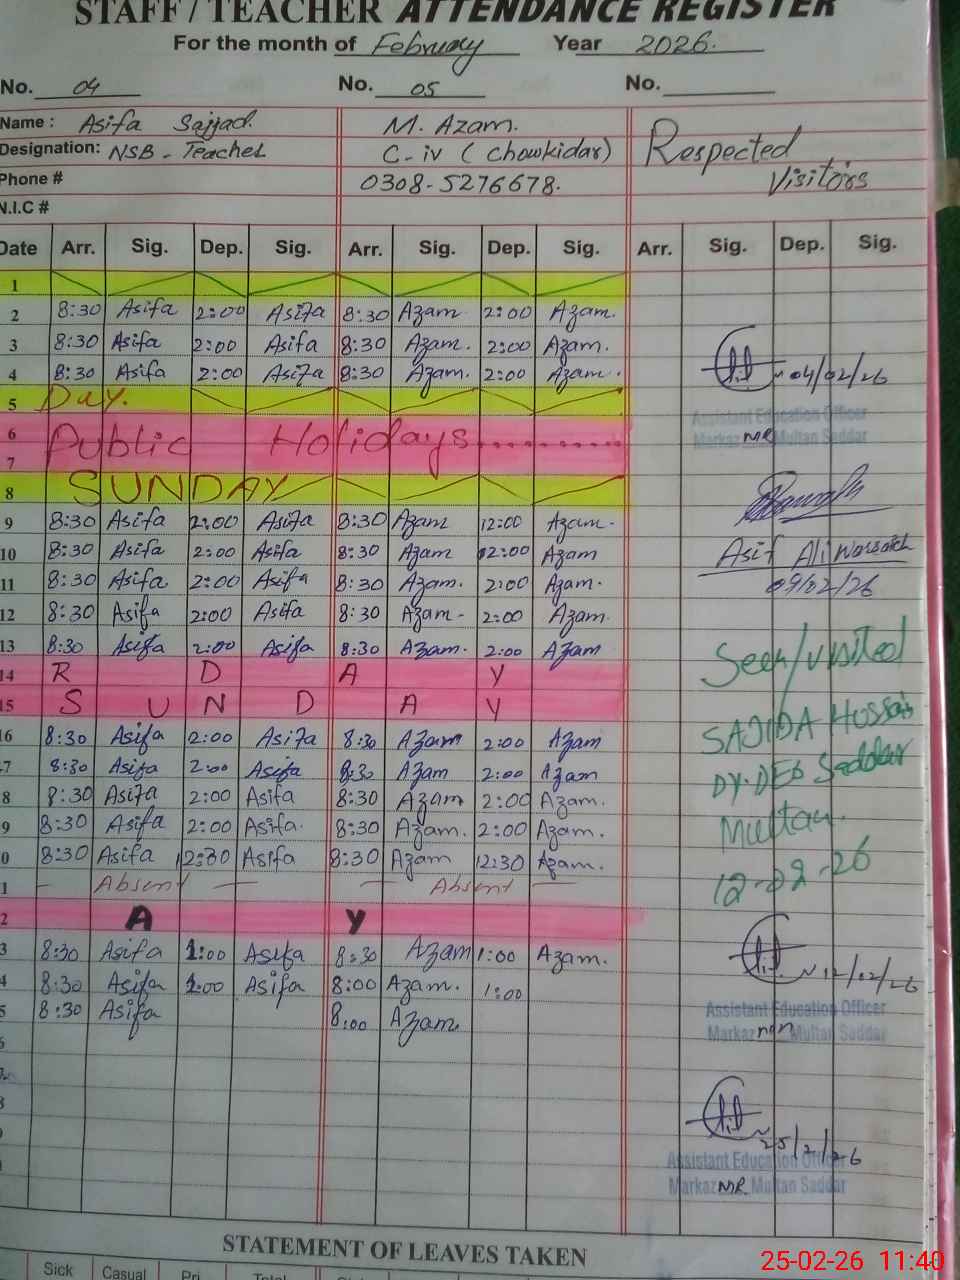 STAFF / TEACHER ATTENDANCE REGISTER
For the month of February Year 2026.
No. 04 No. 05 No.
Name : Asifa Sajjad. M. Azam.
Designation: NSB - Teacher C-iv ( Chowkidar) Respected
Phone # 0308-5276678. Visitors
N.I.C #
Date Arr. Sig. Dep. Sig. Arr. Sig. Dep. Sig. Arr. Sig. Dep. Sig.
1
2 8:30 Asifa 2:00 Asifa 8:30 Azam. 2:00 Azam.
3 8:30 Asifa 2:00 Asifa 8:30 Azam. 2:00 Azam.
4 8:30 Asifa 2:00 Asifa 8:30 Azam. 2:00 Azam. 04/02/26
5 Day.
Assistant Education Officer
6 Public Holidays
Markaz MR Multan Saddar
7
8 SUNDAY
9 8:30 Asifa 2:00 Asifa 8:30 Azam 12:00 Azam.
10 8:30 Asifa 2:00 Asifa 8:30 Azam 02:00 Azam Asif Ali Warraich
11 8:30 Asifa 2:00 Asifa 8:30 Azam. 2:00 Azam. 09/02/26
12 8:30 Asifa 2:00 Asifa 8:30 Azam- 2:00 Azam.
13 8:30 Asifa 2:00 Asifa 8:30 Azam. 2:00 Azam Seen/visited
14 R D A Y
15 S U N D A Y SAJIDA Hussain
16 8:30 Asifa 2:00 Asifa 8:30 Azam 2:00 Azam
7 8:30 Asifa 2:00 Asifa 8:30 Azam 2:00 Azam DY. DEO Saddar
8 8:30 Asifa 2:00 Asifa 8:30 Azam 2:00 Azam.
9 8:30 Asifa 2:00 Asifa. 8:30 Azam. 2:00 Azam. Multan.
0 8:30 Asifa 12:30 Asifa 8:30 Azam 12:30 Azam.
1 Absent Absent 12-02-26
2 A Y
3 8:30 Asifa 1:00 Asifa 8:30 Azam 1:00 Azam.
4 8:30 Asifa 1:00 Asifa 8:00 Azam. 1:00 12/02/26
5 8:30 Asifa 8:00 Azam.
Assistant Education Officer
Markaz Multan Saddar
6
8
25/2/26
Assistant Education Officer
Markaz MR Multan Saddar
STATEMENT OF LEAVES TAKEN
Sick Casual Pri. Total
25-02-26 11:40